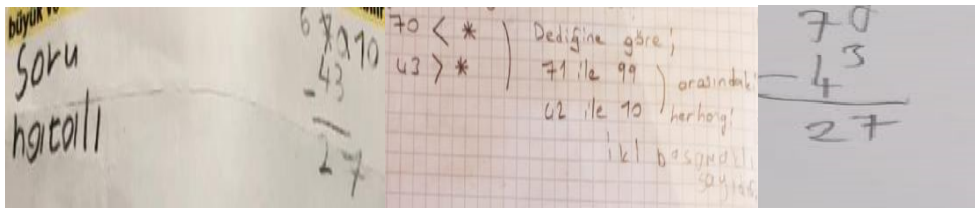 büyük
Soru
hatalı
6 10
70
- 43
27
70 < *
43 > *
Dediğine göre;
71 ile 99
42 ile 10
arasındaki
herhangi
iki basamaklı
sayıdır
70
- 43
27